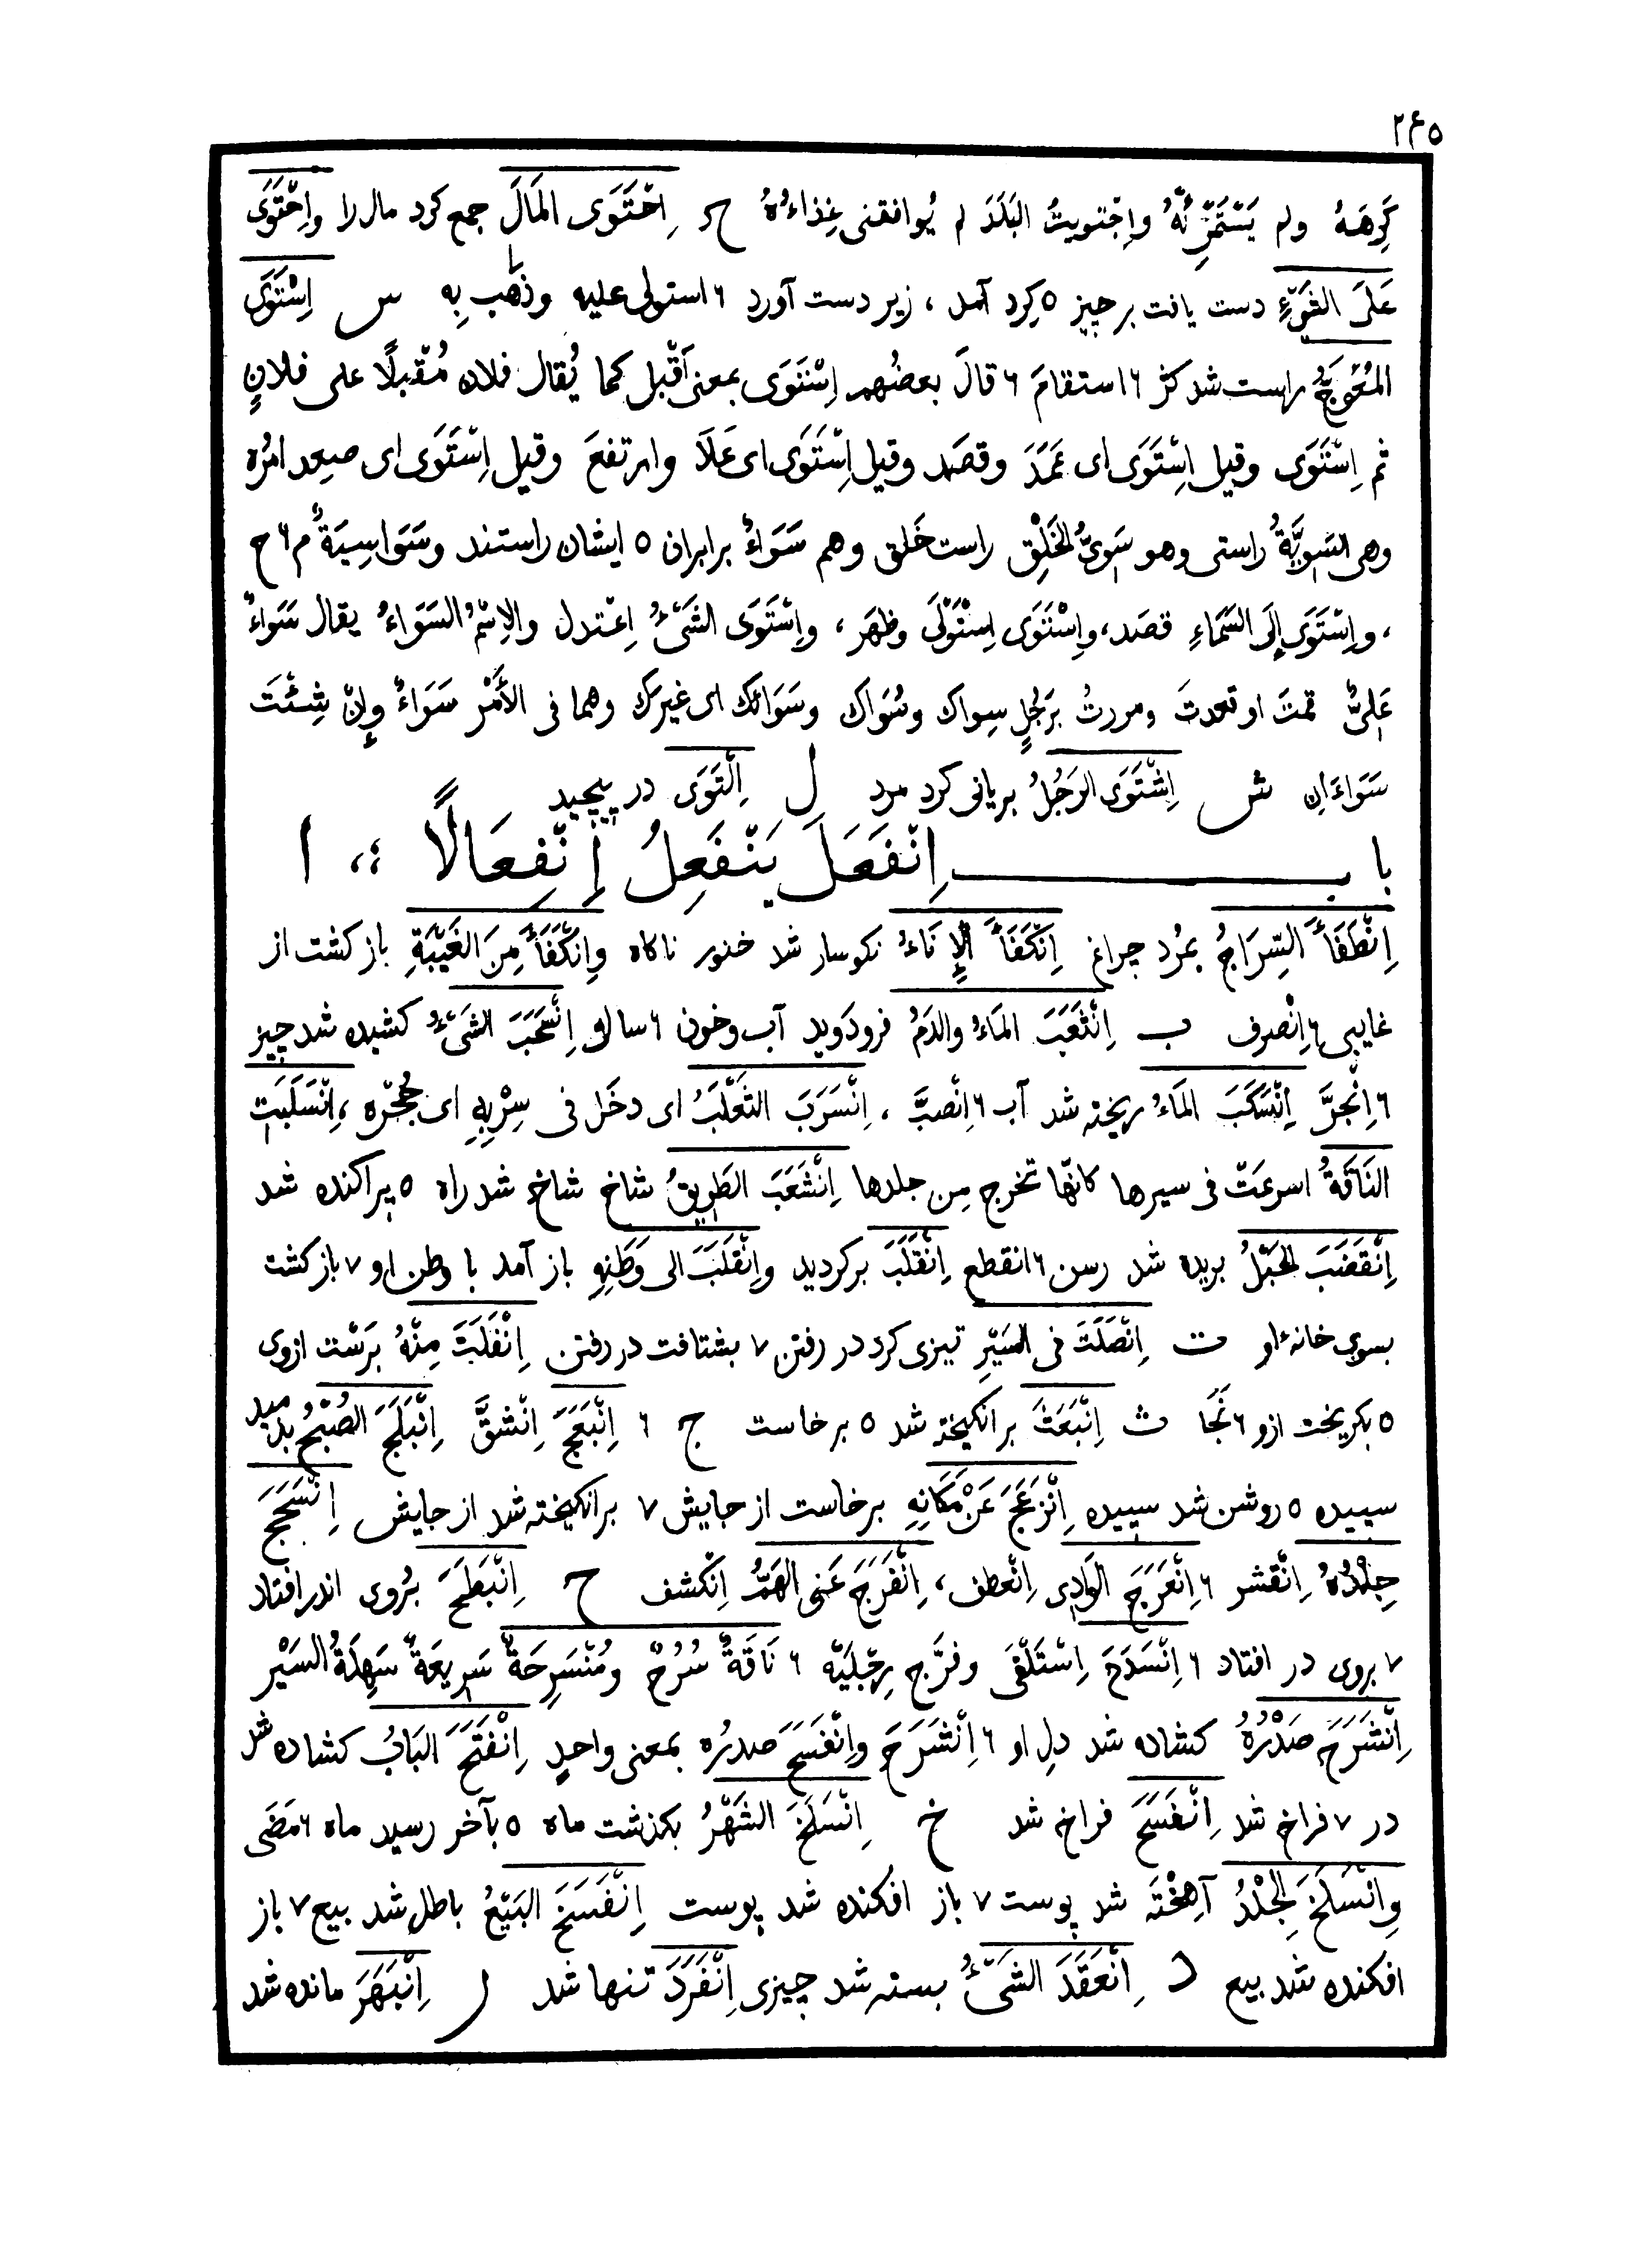 ٢٤٥
كَرِهَهُ ولم يَسْتَمْرِئْهُ واِجْتويتُ البَلَدَ لم يُوافقنى غِذاءُهُ ح اِحْتَوَى المَالَ جمع کرد مال را واِحْتَوَى
عَلَى الشَّىْءِ دست یافت بر چیز ٥ کرد آمد ، زیر دست آورد ٦ استولى عليه وذَهَب بِهِ س اِسْتَوَى
المُعْوَجُّ راست شد کژ ٦ استقامَ ٦ قالَ بعضُهم اِسْتَوَى بمعنى أَقْبل كما يُقال فلان مُقْبلًا على فلانٍ
ثم اِسْتَوَى وقيل اِسْتَوَى اى عَمَدَ وقصَد وقيل اِسْتَوَى اى عَلَا وارتفعَ وقيل اِسْتَوَى اى صعِد امرُه
وهى السَّوِيَّةُ راستى وهو سَوِىُّ الخَلْقِ راست خَلق وهم سَوَاءٌ برابران ٥ ایشان راستند وسَوَاسِيَةٌ م ٦ ح
، واِسْتَوَى إلَى السَّمَاءِ قصَد، واِسْتَوَى اِسْتَوْلَى وظهَر ، واِسْتَوَى الشَّىْءُ اِعْتدل والاِسْمُ السَّوَاءُ يقال سَوَاءٌ
عَلَىَّ قمتَ او قعدتَ ومررتُ برَجُلٍ سِواك وسُوَاك وسَوَائك اى غيرك وهما فى الأَمْر سَوَاءٌ وإنْ شِئْتَ
سَوَاءَانِ ش اِشْتَوَى الرَّجُلُ بریانی کرد مرد ل اِلْتَوَى در پیچید
باب اِنْفَعَلَ يَنْفَعِلُ اِنْفِعَالًا ،، ا
اِنْطَفَأَ السِّرَاجُ بمُرد چراغ اِنْكَفَأَ الإِنَاءُ نکوسار شد خنور ناکاه واِنْكَفَأَ مِنَ الغَيْبَةِ باز کشت از
غایبی ٦ اِنْصرف ب اِنْثَعَبَ المَاءُ والدَمُ فرودَوید آب وخون ٦ سال اِنْسَحَبَ الشَىْءُ کشیده شد چیز
٦ اِنْجرَّ اِنْسَكَبَ المَاءُ ریخته شد آب ٦ اِنْصبَّ ، اِنْسَرَبَ الثَعْلَبُ اى دخَل فى سِرْبِهِ اى جُحْرَه ، اِنْسَلَبَتِ
النَاقَةُ اسرعَتْ فى سيرها كانّها تخرج مِن جلدها اِنْشَعَبَ الطَرِيقُ شاخ شاخ شد راه ٥ پراکنده شد
اِنْقَضَبَ الحَبْلُ بریده شد رسن ٦ انقطع اِنْقَلَبَ برکردید واِنْقَلَبَ الى وَطَنِهِ باز آمد با وطن او ٧ باز کشت
بسوی خانهٔ او ت اِنْصَلَتَ فى السَيْرِ تیزی کرد در رفتن ٧ بشتافت در رفتن اِنْفَلَتَ مِنْهُ برَست ازوی
٥ بکریخت ازو ٦ نَجَا ث اِنْبَعَثَ برانکیخته شد ٥ برخاست ج ٦ اِنْبَعَجَ اِنْشقَّ اِنْبَلَجَ الصُبْحُ بدمید
سپیده ٥ روشن شد سپیده اِنْزعَجَ عَنْ مَكَانِهِ برخاست از جایش ٧ برانکیخته شد از جایش اِنْسَحَجَ
جِلْدُهُ اِنْقشر ٦ اِنْعَرَجَ الوَادِى اِنْعطف ، اِنْفَرَجَ عَنِى الهَمُّ اِنْكشف ح اِنْبَطَحَ برُوی اندر افتاد
٧ بروی در افتاد ٦ اِنْسَدَحَ اِسْتَلْقَى وفرَّج رِجْليَه ٦ نَاقَةٌ سُرُحٌ ومُنْسَرِحَةٌ سَرِيعَةٌ سَهلَةُ السَيْر
اِنْشَرَحَ صَدْرُهُ کشاده شد دل او ٦ اِنْشَرَحَ واِنْفَسَحَ صدرُه بمعنى واحدٍ اِنْفَتَحَ البَابُ کشاده شد
در ٧ فراخ شد اِنْفَسَحَ فراخ شد خ اِنْسَلَخَ الشَهْرُ بکذشت ماه ٥ بآخر رسید ماه ٦ مَضَى
وِانْسَلَخَ الجِلْدُ آهِخْتَه شد پوست ٧ باز افکنده شد پوست اِنْفَسَخَ البَيْعُ باطل شد بیع ٧ باز
افکنده شد بیع د اِنْعَقَدَ الشَىْءُ بسته شد چیزی اِنْفَرَدَ تنها شد ر اِنْبَهَرَ مانده شد